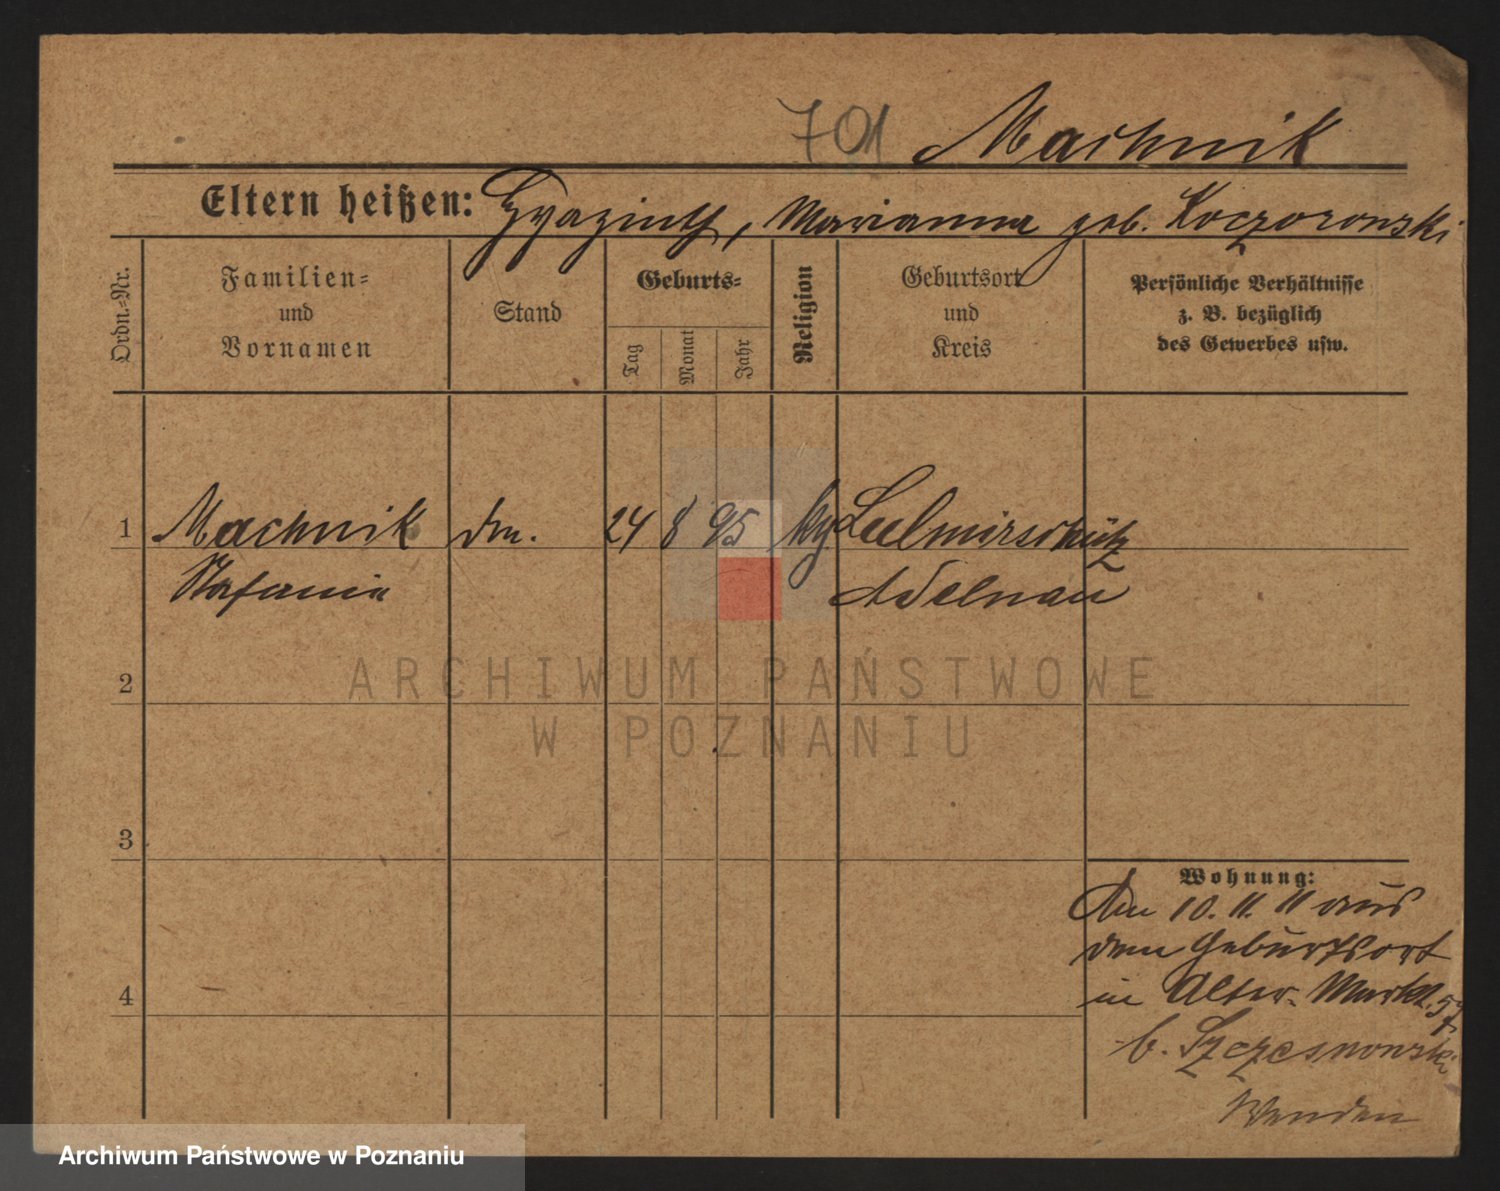 701 Machnik
Eltern heißen: Hyazinth, Marianna geb. Koczorowski
Ordn.-Nr.
Familien-
und
Vornamen
Stand
Geburts-
Tag
Monat
Jahr
Religion
Geburtsort
und
Kreis
Persönliche Verhältnisse
z. B. bezüglich
des Gewerbes usw.
1 Machnik 24 8 95 Sulmirschütz
Stefania Adelnau
2
ARCHIWUM PAŃSTWOWE
W POZNANIU
3
Wohnung:
Am 10. 11. 11 aus
dem Geburtsort
in Alter-Markt.
4
b. Szczesnowski
Wenden
Archiwum Państwowe w Poznaniu